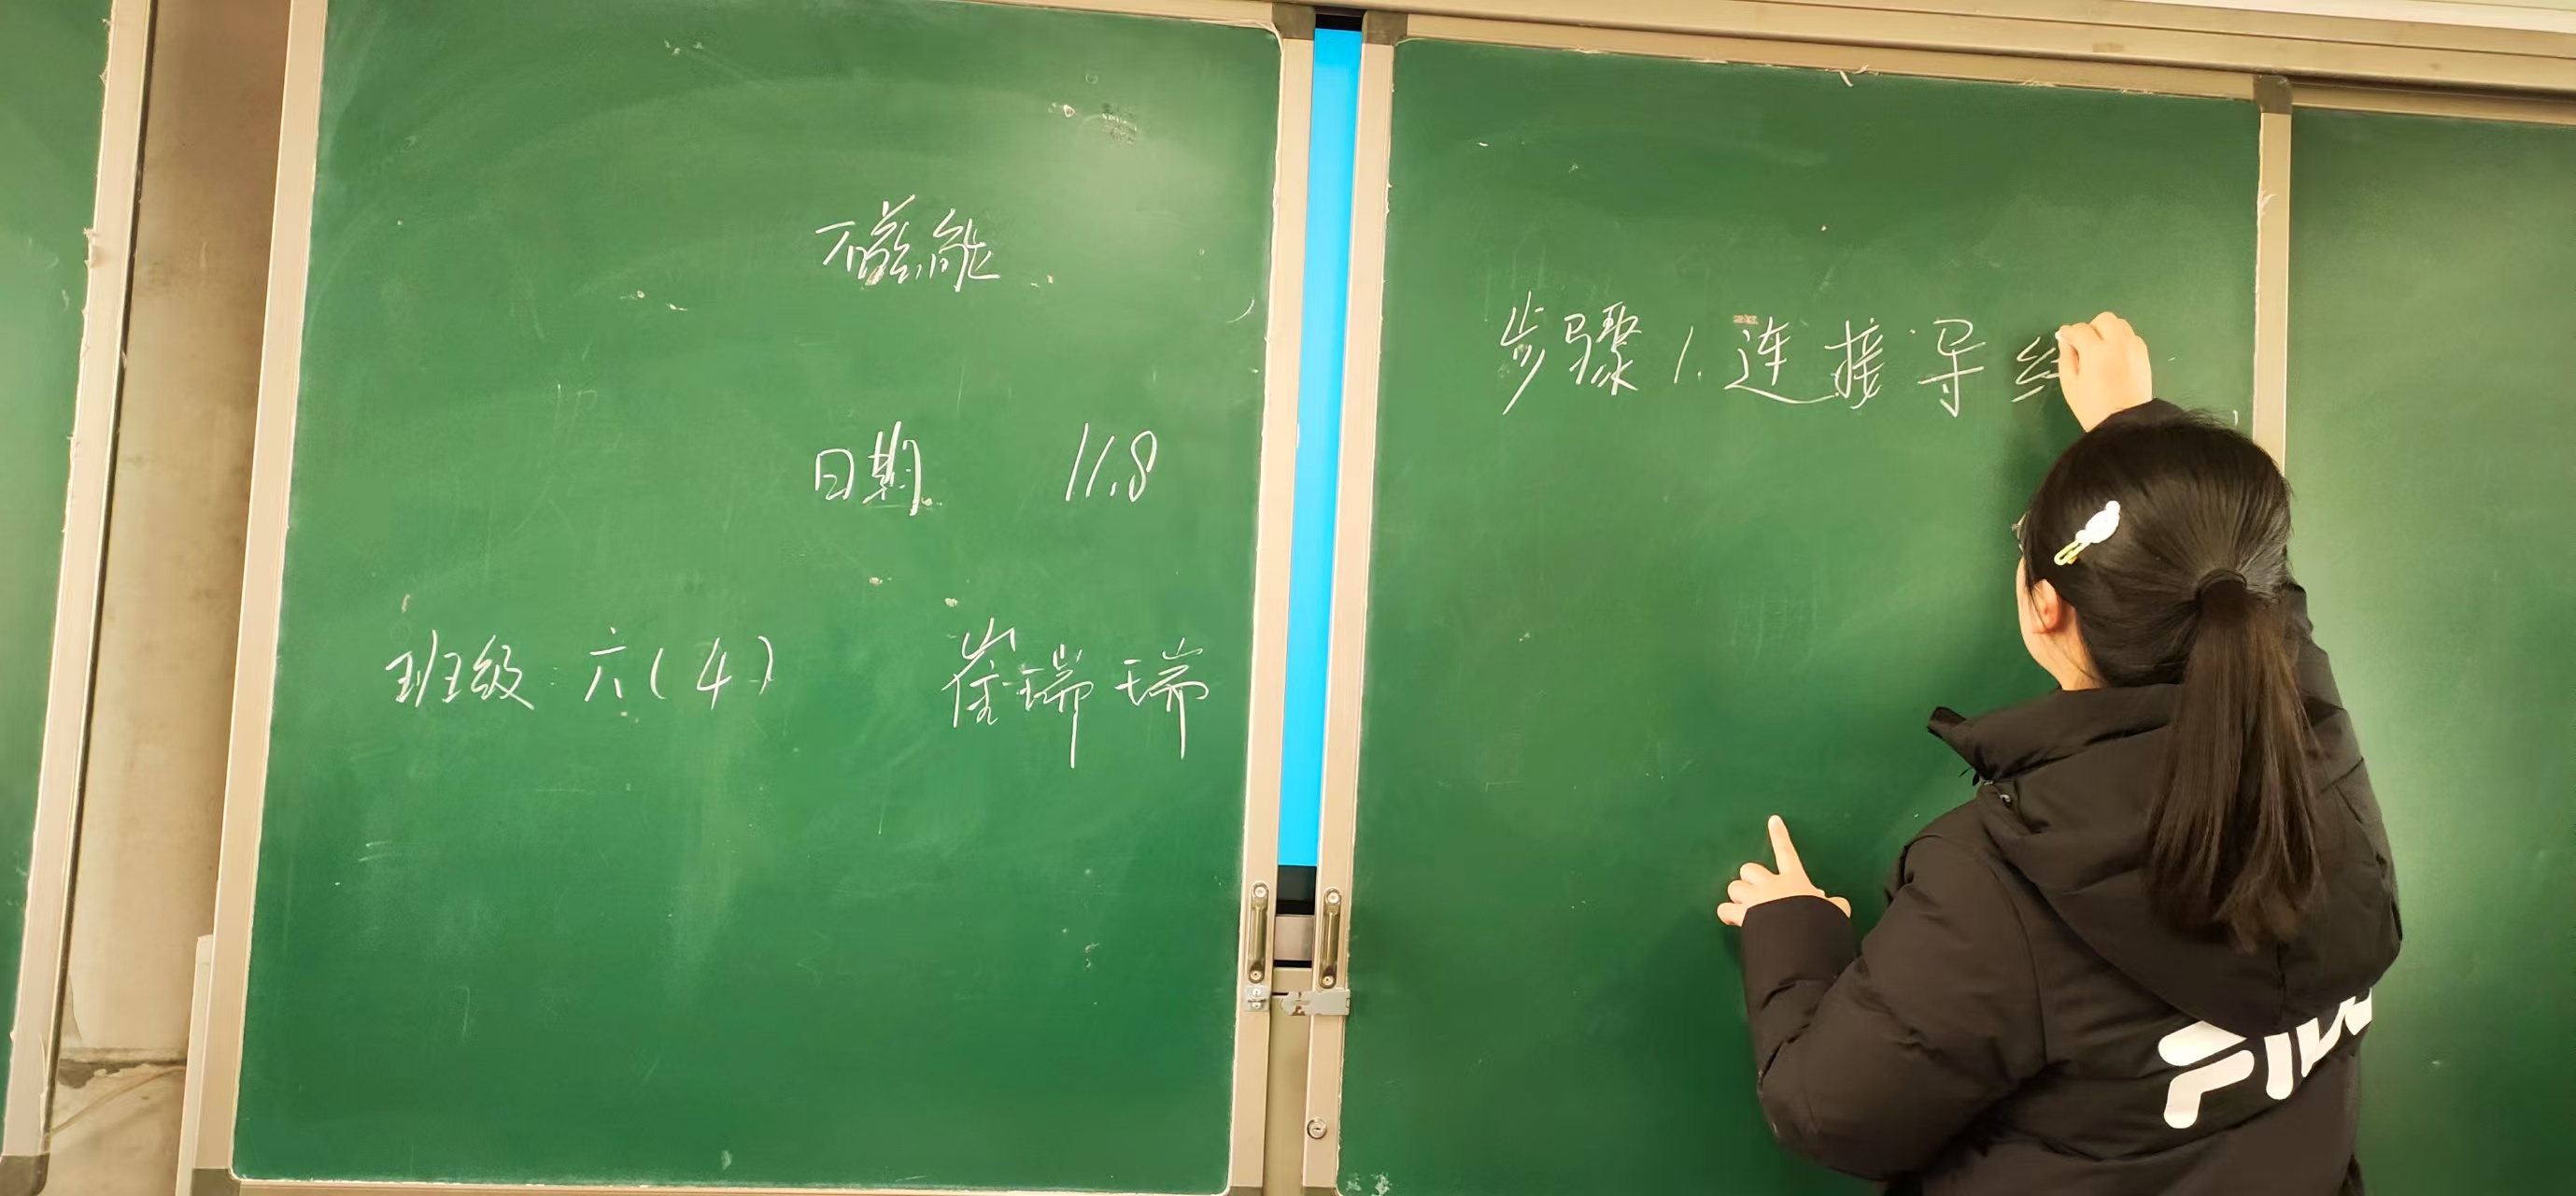 磁能
日期 11.8
班级:六(4) 崔瑞瑞
步骤1.连接导